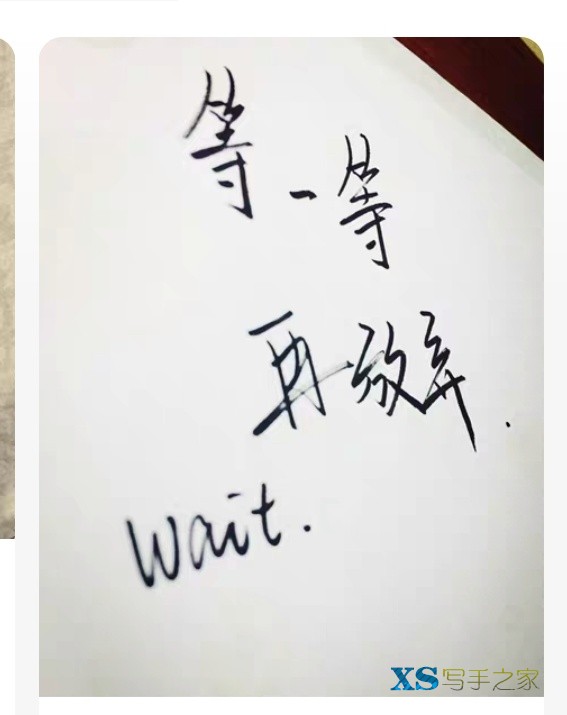 等一等
再放弃.
wait.
XS写手之家